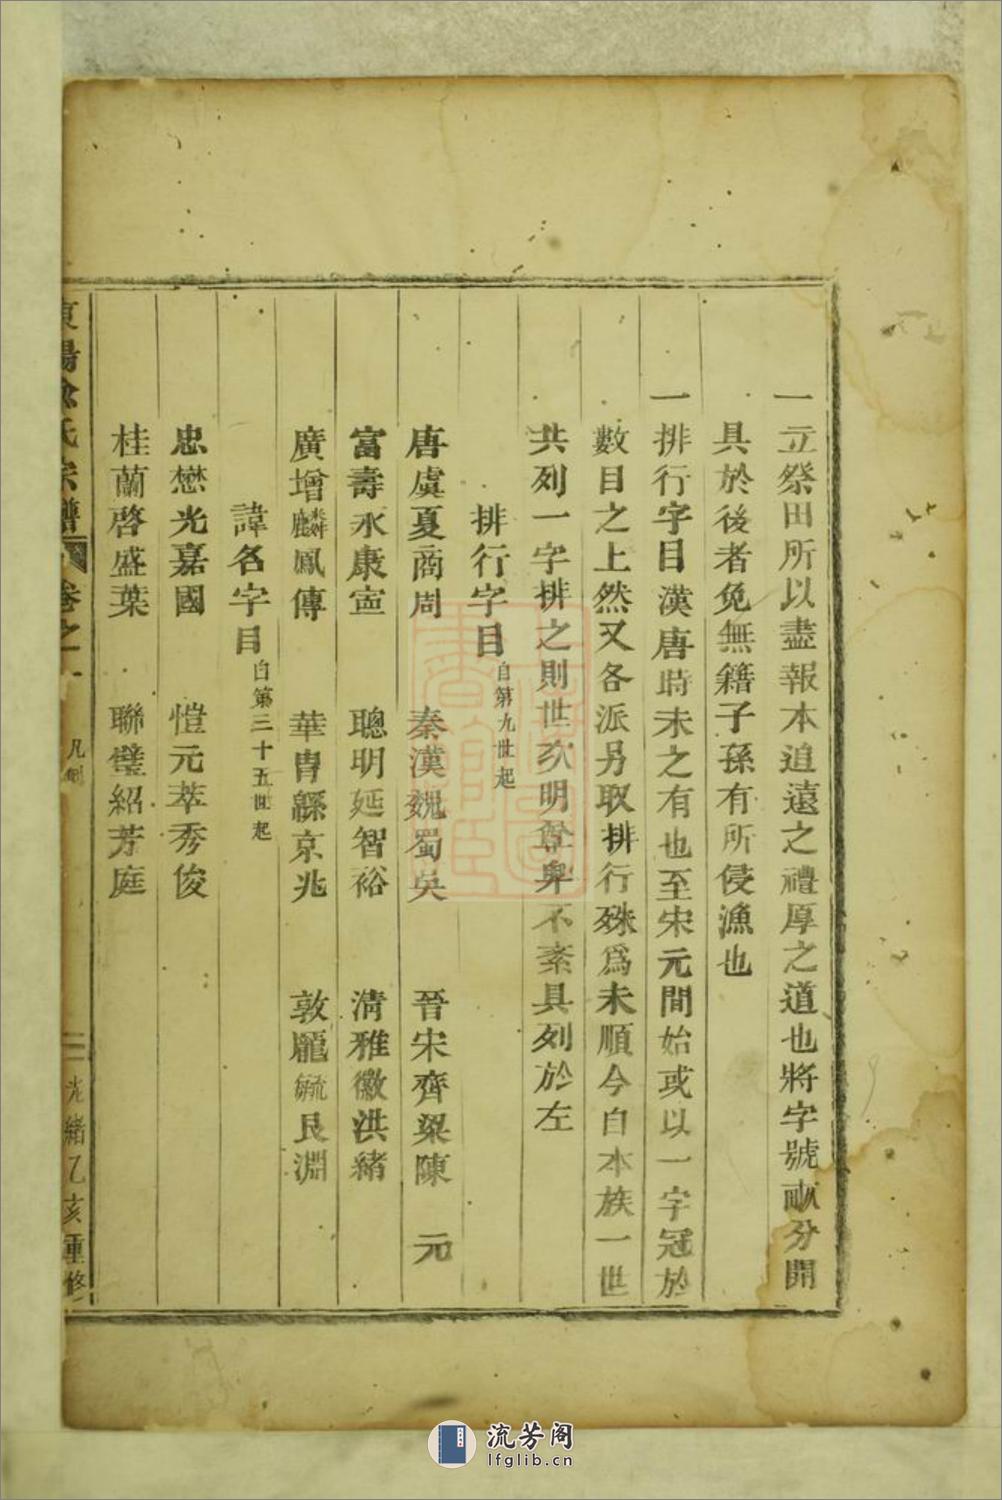 一立祭田所以盡報本追遠之禮厚之道也將字號畝分開
具於後者免無籍子孫有所侵漁也
一排行字目漢唐時未之有也至宋元間始或以一字冠於
數目之上然又各派另取排行殊爲未順今自本族一世
共列一字排之則世次明尊卑不紊具列於左
排行字目自第九世起
唐虞夏商周 秦漢魏蜀吳 晉宋齊梁陳 元
富壽永康寍 聰明延智裕 清雅徽洪緒
廣增麟鳳傳 華胄繇京兆 敦龐毓艮淵
諱名字目自第三十五世起
忠懋光嘉國 愷元萃秀俊
桂蘭啓盛葉 聯璧紹芳庭
東陽俞氏宗譜 卷之一 凡例 二 光緒乙亥重修
流芳阁
lfglib.cn